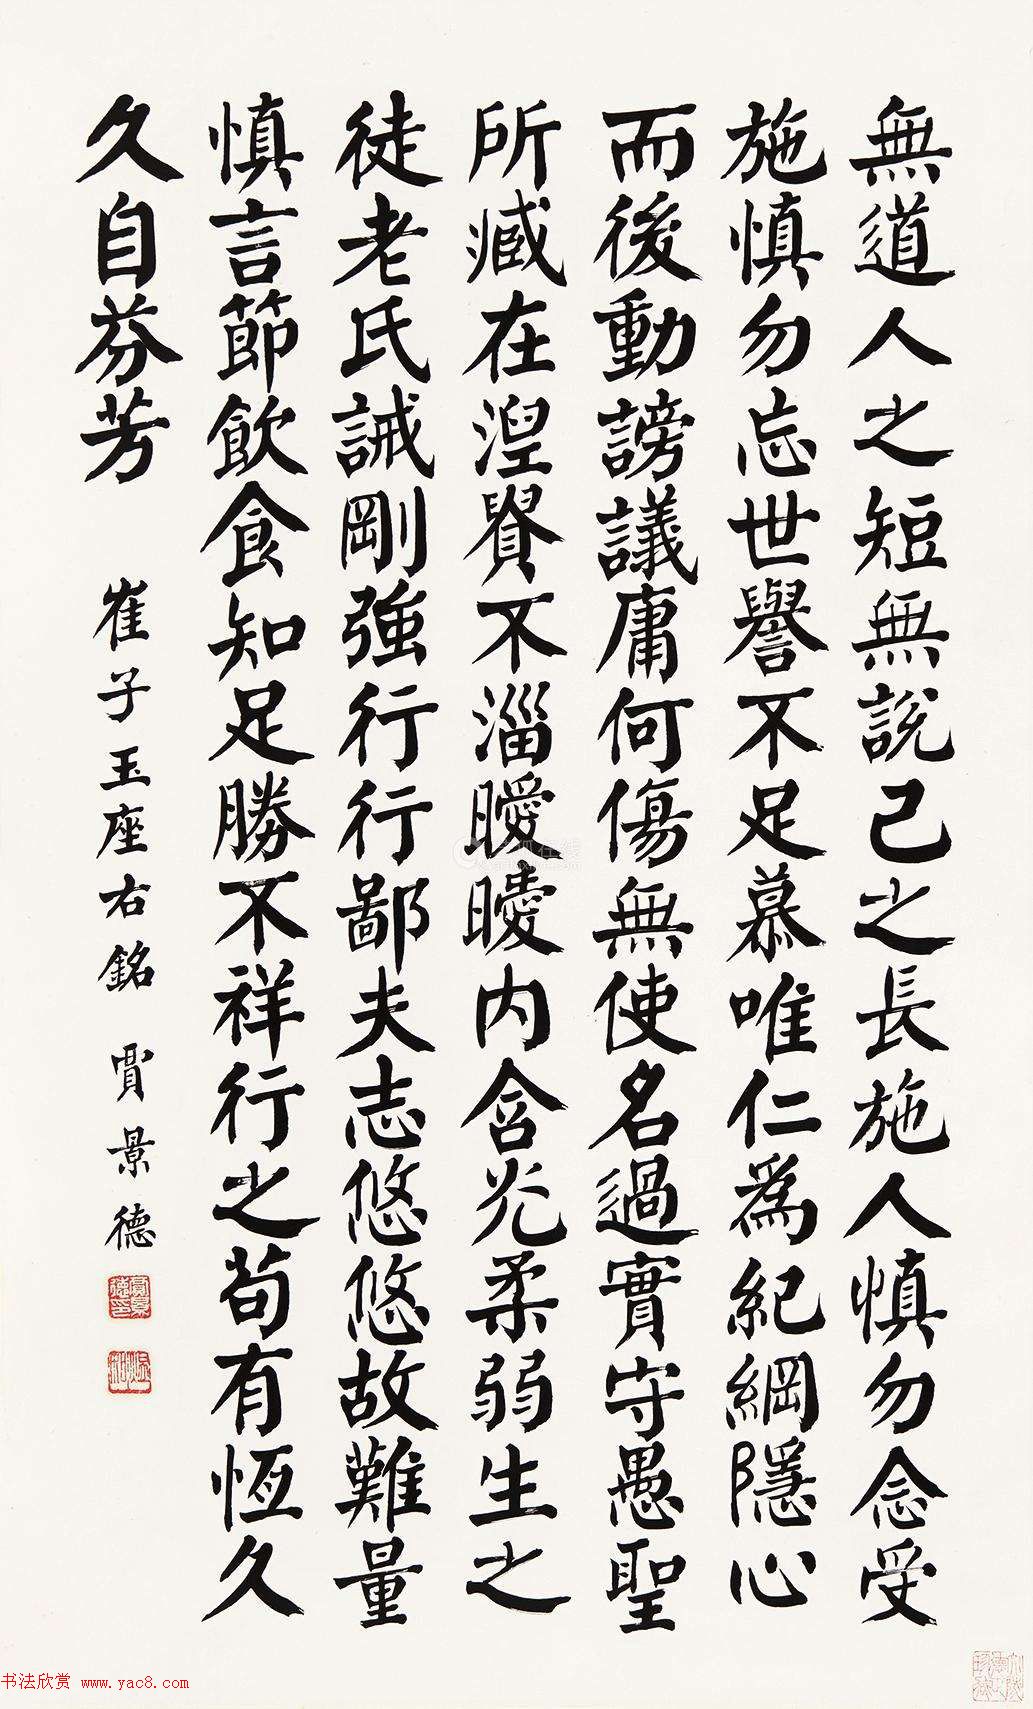 無道人之短無説己之長施人慎勿念受
施慎勿忘世譽不足慕唯仁爲紀綱隱心
而後動謗議庸何傷無使名過實守愚聖
所臧在湼貴不淄曖曖内含光柔弱生之
徒老氏誡剛強行行鄙夫志悠悠故難量
慎言節飲食知足勝不祥行之苟有恆久
久自芬芳
崔子玉座右銘 賈景德
賈景德印
书法欣赏 www.yac8.com